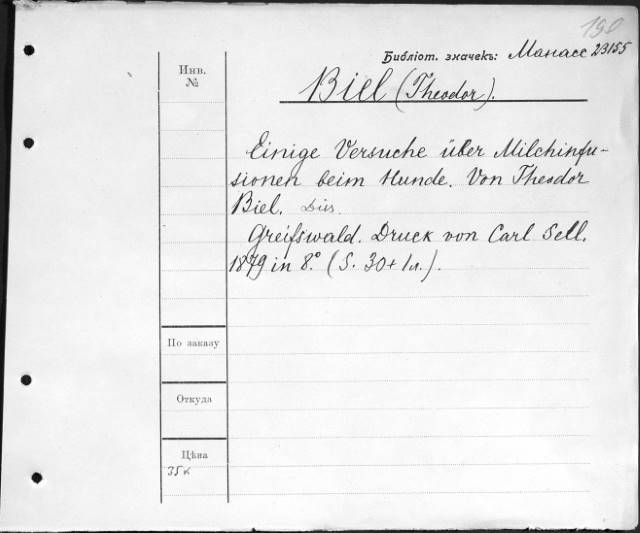 190
Библіот. значекъ: Манасс 23155
Инв.
№
Biel (Theodor).
Einige Versuche über Milchinfu-
sionen beim Hunde. Von Theodor
Biel. Diss.
Greifswald. Druck von Carl Sell.
1879 in 8.° (S. 30 + 1 л.).
По заказу
Откуда
Цѣна
35 к